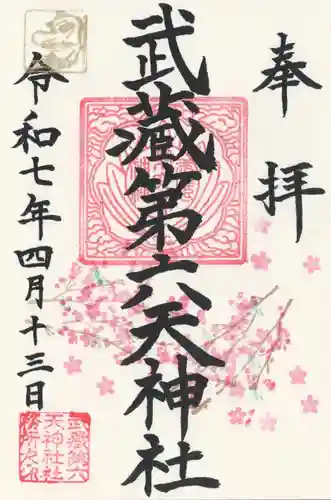 奉拝
武蔵第六天神社
令和七年四月十三日
武蔵第六
天神社社
務所之印